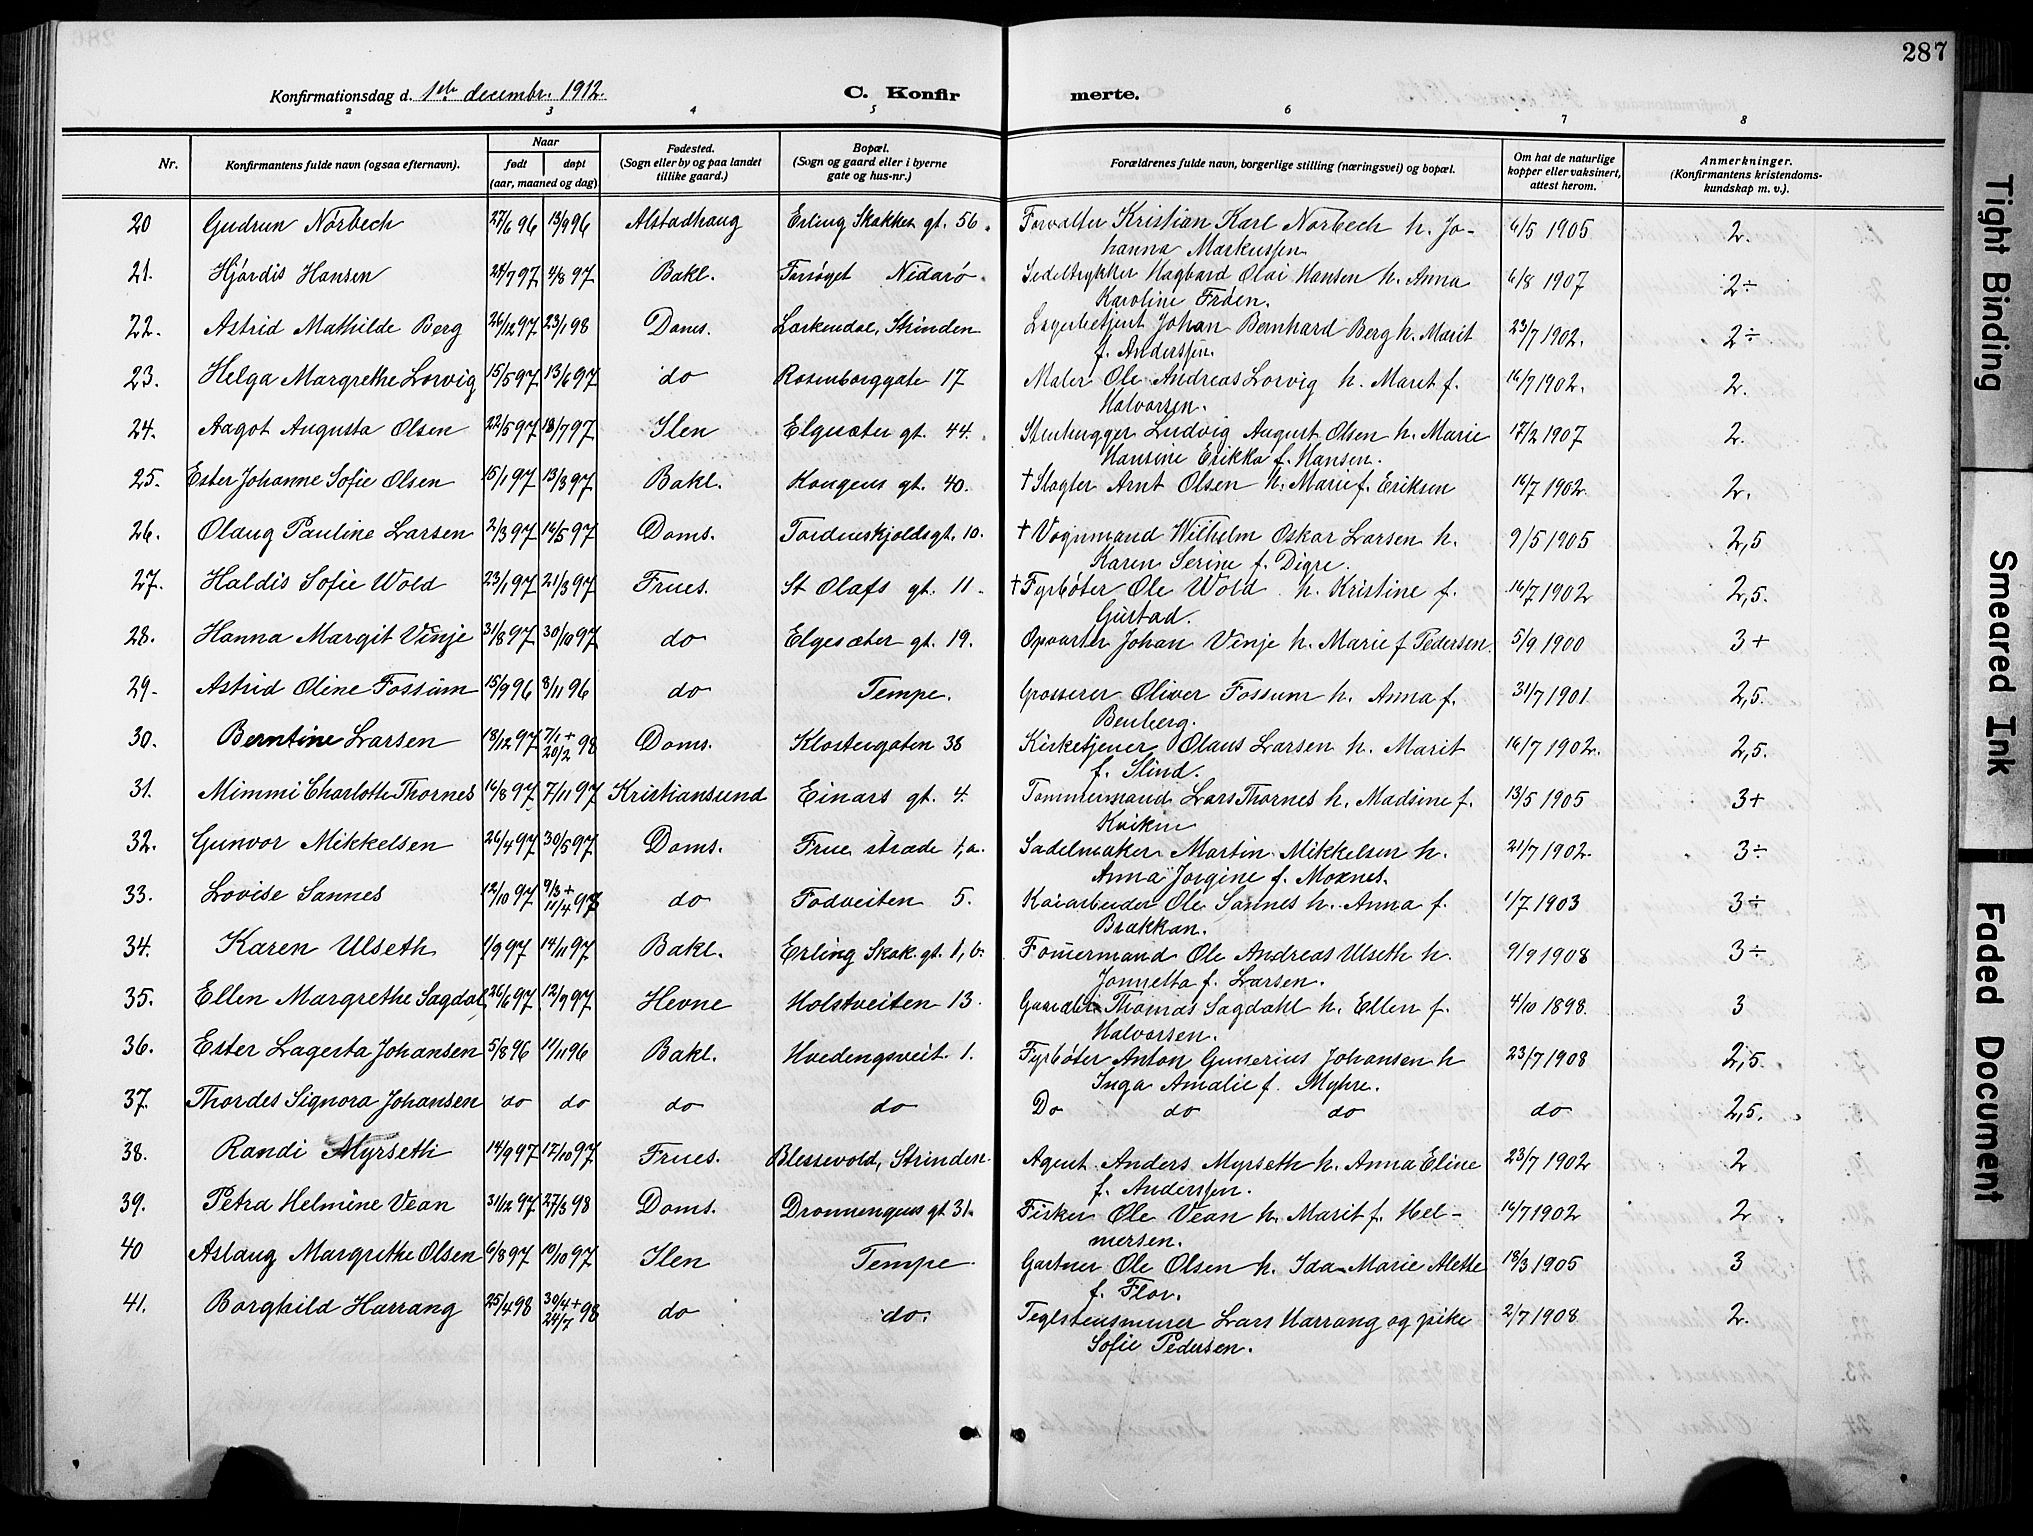 287
Konfirmationsdag d. 1ste decembr. 1912.
C. Konfirmerte.
2 3 4 5 6 7 8
Nr. Konfirmantens fulde navn (ogsaa efternavn). Naar født døpt (aar, maaned og dag) Fødested. (Sogn eller by og paa landet tillike gaard.) Bopæl. (Sogn og gaard eller i byerne gate og hus-nr.) Forældrenes fulde navn, borgerlige stilling (næringsvei) og bopæl. Om hat de naturlige kopper eller vaksinert, attest herom. Anmerkninger. (Konfirmantens kristendomskundskap m. v.).
20 Gudrun Norbech 27/6 96 13/9 96 Alstadhaug Erling Skakkes gt. 56. Forvalter Kristian Karl Norbech h. Jo- 6/5 1905 2.
hanna Markussen
21. Hjördis Hansen 28/7 97 4/8 97 Bakl. Forsøget Nidarö. Sedeltrykker Hagbard Olai Hansen h. Anna 6/8 1907 2÷
Karoline Fröen.
22. Astrid Mathilde Berg 26/12 97 23/1 98 Doms. Lerkendal, Strinden Lagerbetjent Johan Bernhard Berg h. Marit 23/7 1902. 2÷
f. Anderssen.
23. Helga Margrethe Lorvig 15/5 97 13/6 97 do Rosenborggate 17 Maler Ole Andreas Lorvig h. Maret f. 16/7 1902. 2.
Halvorsen.
24. Aagot Augusta Olsen 22/5 97 18/7 97 Ilen Elgesæter gt. 44. Stenhugger Ludvig August Olsen h. Marie 17/2 1907 2.
Hansine Erikka f. Hansen.
25. Ester Johanne Sofie Olsen 15/1 97 13/3 97 Bakl. Kongens gt. 40. † Slagter Arnt Olsen h. Marie f. Eriksen 16/7 1902. 2.
26. Olaug Pauline Larsen 2/3 97 16/5 97 Doms. Tordenskjoldsgt. 10. † Vognmand Wilhelm Oskar Larsen h. 9/5 1905 2,5
Karen Serine f. Digre.
27. Haldis Sofie Wold 23/1 97 21/3 97 Frues. St Olafs gt. 11. † Fyrböter Ole Wold h. Kristine f. 16/7 1902 2,5.
Gustad.
28. Hanna Margit Vinje 31/8 97 30/10 97 do Elgesæter gt. 19. Opvarter Johan Vinje h. Marie f Pedersen. 5/9 1900 3+
29. Astrid Oline Fossum 15/9 96 8/11 96 do Tempe. Grosserer Oliver Fossum h. Anna f. 31/7 1901 2,5.
Benberg.
30. Berntine Larsen 18/12 97 7/1 + 20/2 98 Doms. Klostergaten 38 Kirketjener Olaus Larsen h. Marit 16/7 1902. 2,5.
f. Slind.
31. Mimmi Charlotte Thornes 16/8 97 7/11 97 Kristiansund Einars gt. 4. Tømmermand Lars Thornes h. Madsine f. 13/5 1905 3+
Kvikin
32. Gunvor Mikkelsen 26/4 97 30/5 97 Doms. Frue stræde 1,a. Sadelmaker Martin Mikkelsen h. 21/7 1902. 3÷
Anna Jorgine f. Moxnes.
33. Lovise Sannes 12/10 97 9/3 + 11/4 98 do Fodveiten 5. Kaiarbeider Ole Sannes h. Anna f. 1/7 1903 3÷
Brækkan.
34. Karen Ulseth 1/9 97 14/11 97 Bakl. Erling Skak. gt. 1, b. Formermand Ole Andreas Ulseth h. 9/9 1908 3÷
Jonnetta f. Larsen.
35. Ellen Margrethe Sagdal 26/6 97 12/9 97 Hevne Holstveiten 13. Gaardbr. Thomas Sagdahl h. Ellen f. 4/10 1898. 3
Halvorsen.
36. Ester Lagerta Johansen 5/8 96 11/11 96 Bakl. Hvedingsveit. 1. Fyrböter Anton Gunerius Johansen h 23/7 1908 2,5.
Inga Amalie f. Myhre.
37. Thordes Signora Johansen do do do do Do do do do 2,5.
38. Randi Myrseth 14/9 97 17/10 97 Frues. Blessevold, Strinden. Agent. Anders Myrseth h. Anna Eline 23/7 1902 2
f. Anderssen.
39. Petra Helmine Vean 31/12 97 27/3 98 Doms. Dronningens gt 31. Fisker Ole Vean h. Marit f. Hel- 16/7 1902 2
mersen.
40 Aslaug Margrethe Olsen 6/8 97 10/10 97 Ilen Tempe. Gartner Ole Olsen h. Ida Marie Alette 18/3 1905 3
f. Flor.
41. Borghild Harrang 25/4 98 30/4 + 24/7 98 do do. Teglstensmurer Lars Harrang og pike 2/7 1908 2.
Sofie Pedersen.
Tight Binding
Smeared Ink
Faded Document